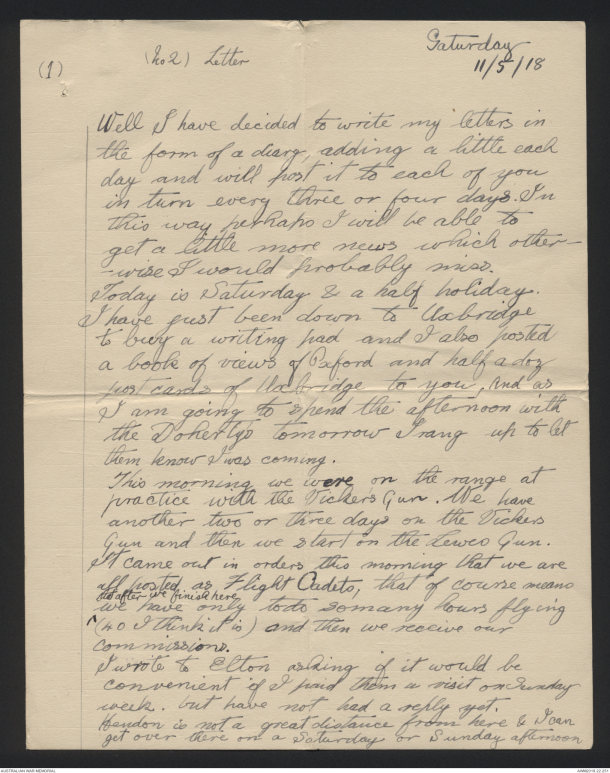 Saturday
11/5/18
(1)
(No 2) Letter
Well I have decided to write my letters in
the form of a diary, adding a little each
day and will post it to each of you
in turn every three or four days. In
this way perhaps I will be able to
get a little more news which other-
-wise I would probably miss.
Today is Saturday & a half holiday.
I have just been down to Uxbridge
to buy a writing pad and I also posted
a book of views of Oxford and half a doz
post cards of Uxbridge to you, And as
I am going to spend the afternoon with
the Doherty's tomorrow I rang up to let
them know I was coming.
This morning we were on the range at
practice with the Vickers Gun. We have
another two or three days on the Vickers
Gun and then we start on the Lewis Gun.
It came out in orders this morning that we are
all posted as Flight Cadets, that of course means
so after we finish here
we have only to do so many hours flying
(40 I think it is) and then we receive our
commissions.
I wrote to Elton asking if it would be
convenient if I paid them a visit on Sunday
week. but have not had a reply yet.
Hendon is not a great distance from here & I can
get over there on a Saturday or Sunday afternoon
AUSTRALIAN WAR MEMORIAL